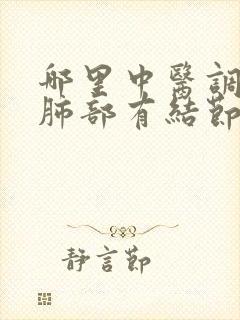 哪里中醫調
肺部有結節
静言節